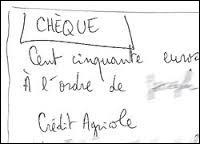 CHÈQUE
Cent cinquante euros
À l'ordre de
Crédit Agricole